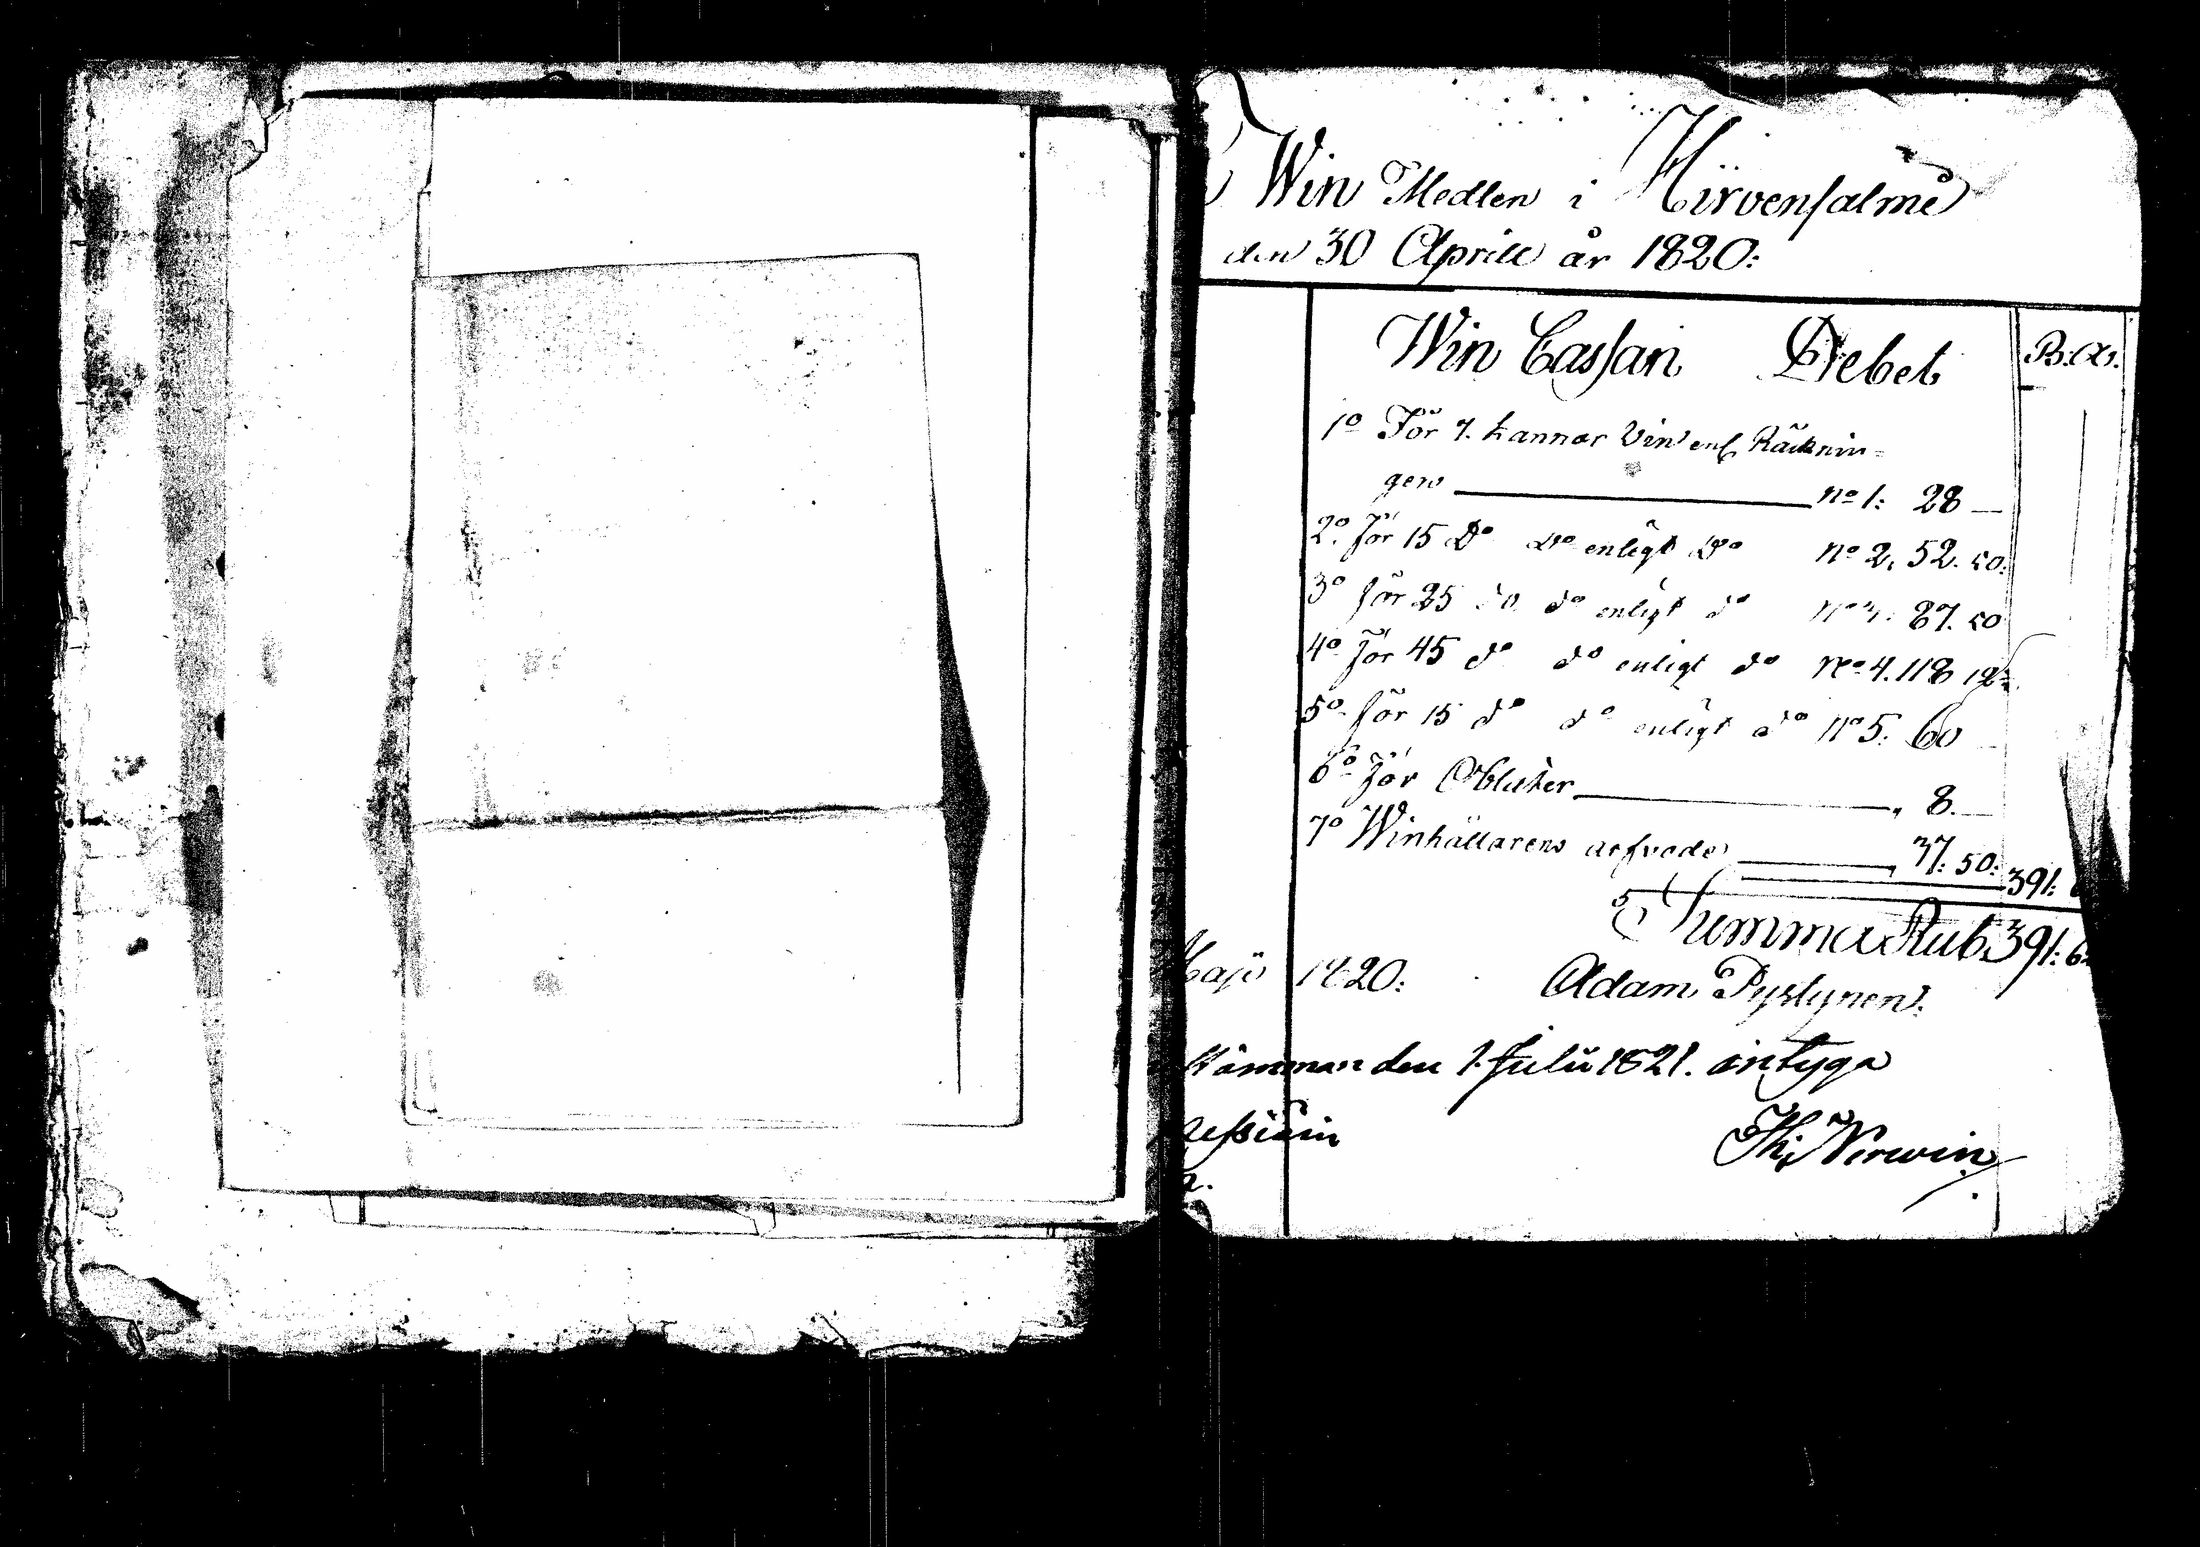 Win Medlen i Hirvensalmi
den 30 Aprill år 1820:
Win Cassan Debet B:A:
1o För 7. kannor Vin enl Räknin-
gen no 1: 28
2o. för 15 Do Do enligt Do no 2. 52. 50.
3o för 25 do. do enligt do no 3. 87. 50
4o för 45 do do enligt do no 4. 118 12
5o för 15 do do enligt do no 5. 60
6o för Oblater 8.
7o Winhållarens arfvode 37: 50: 391:
Summa Rub 391: 6
Maji 1820: Adam Pystynen.
stämman den 1 Julii 1821. intyga
Th: Nerwin